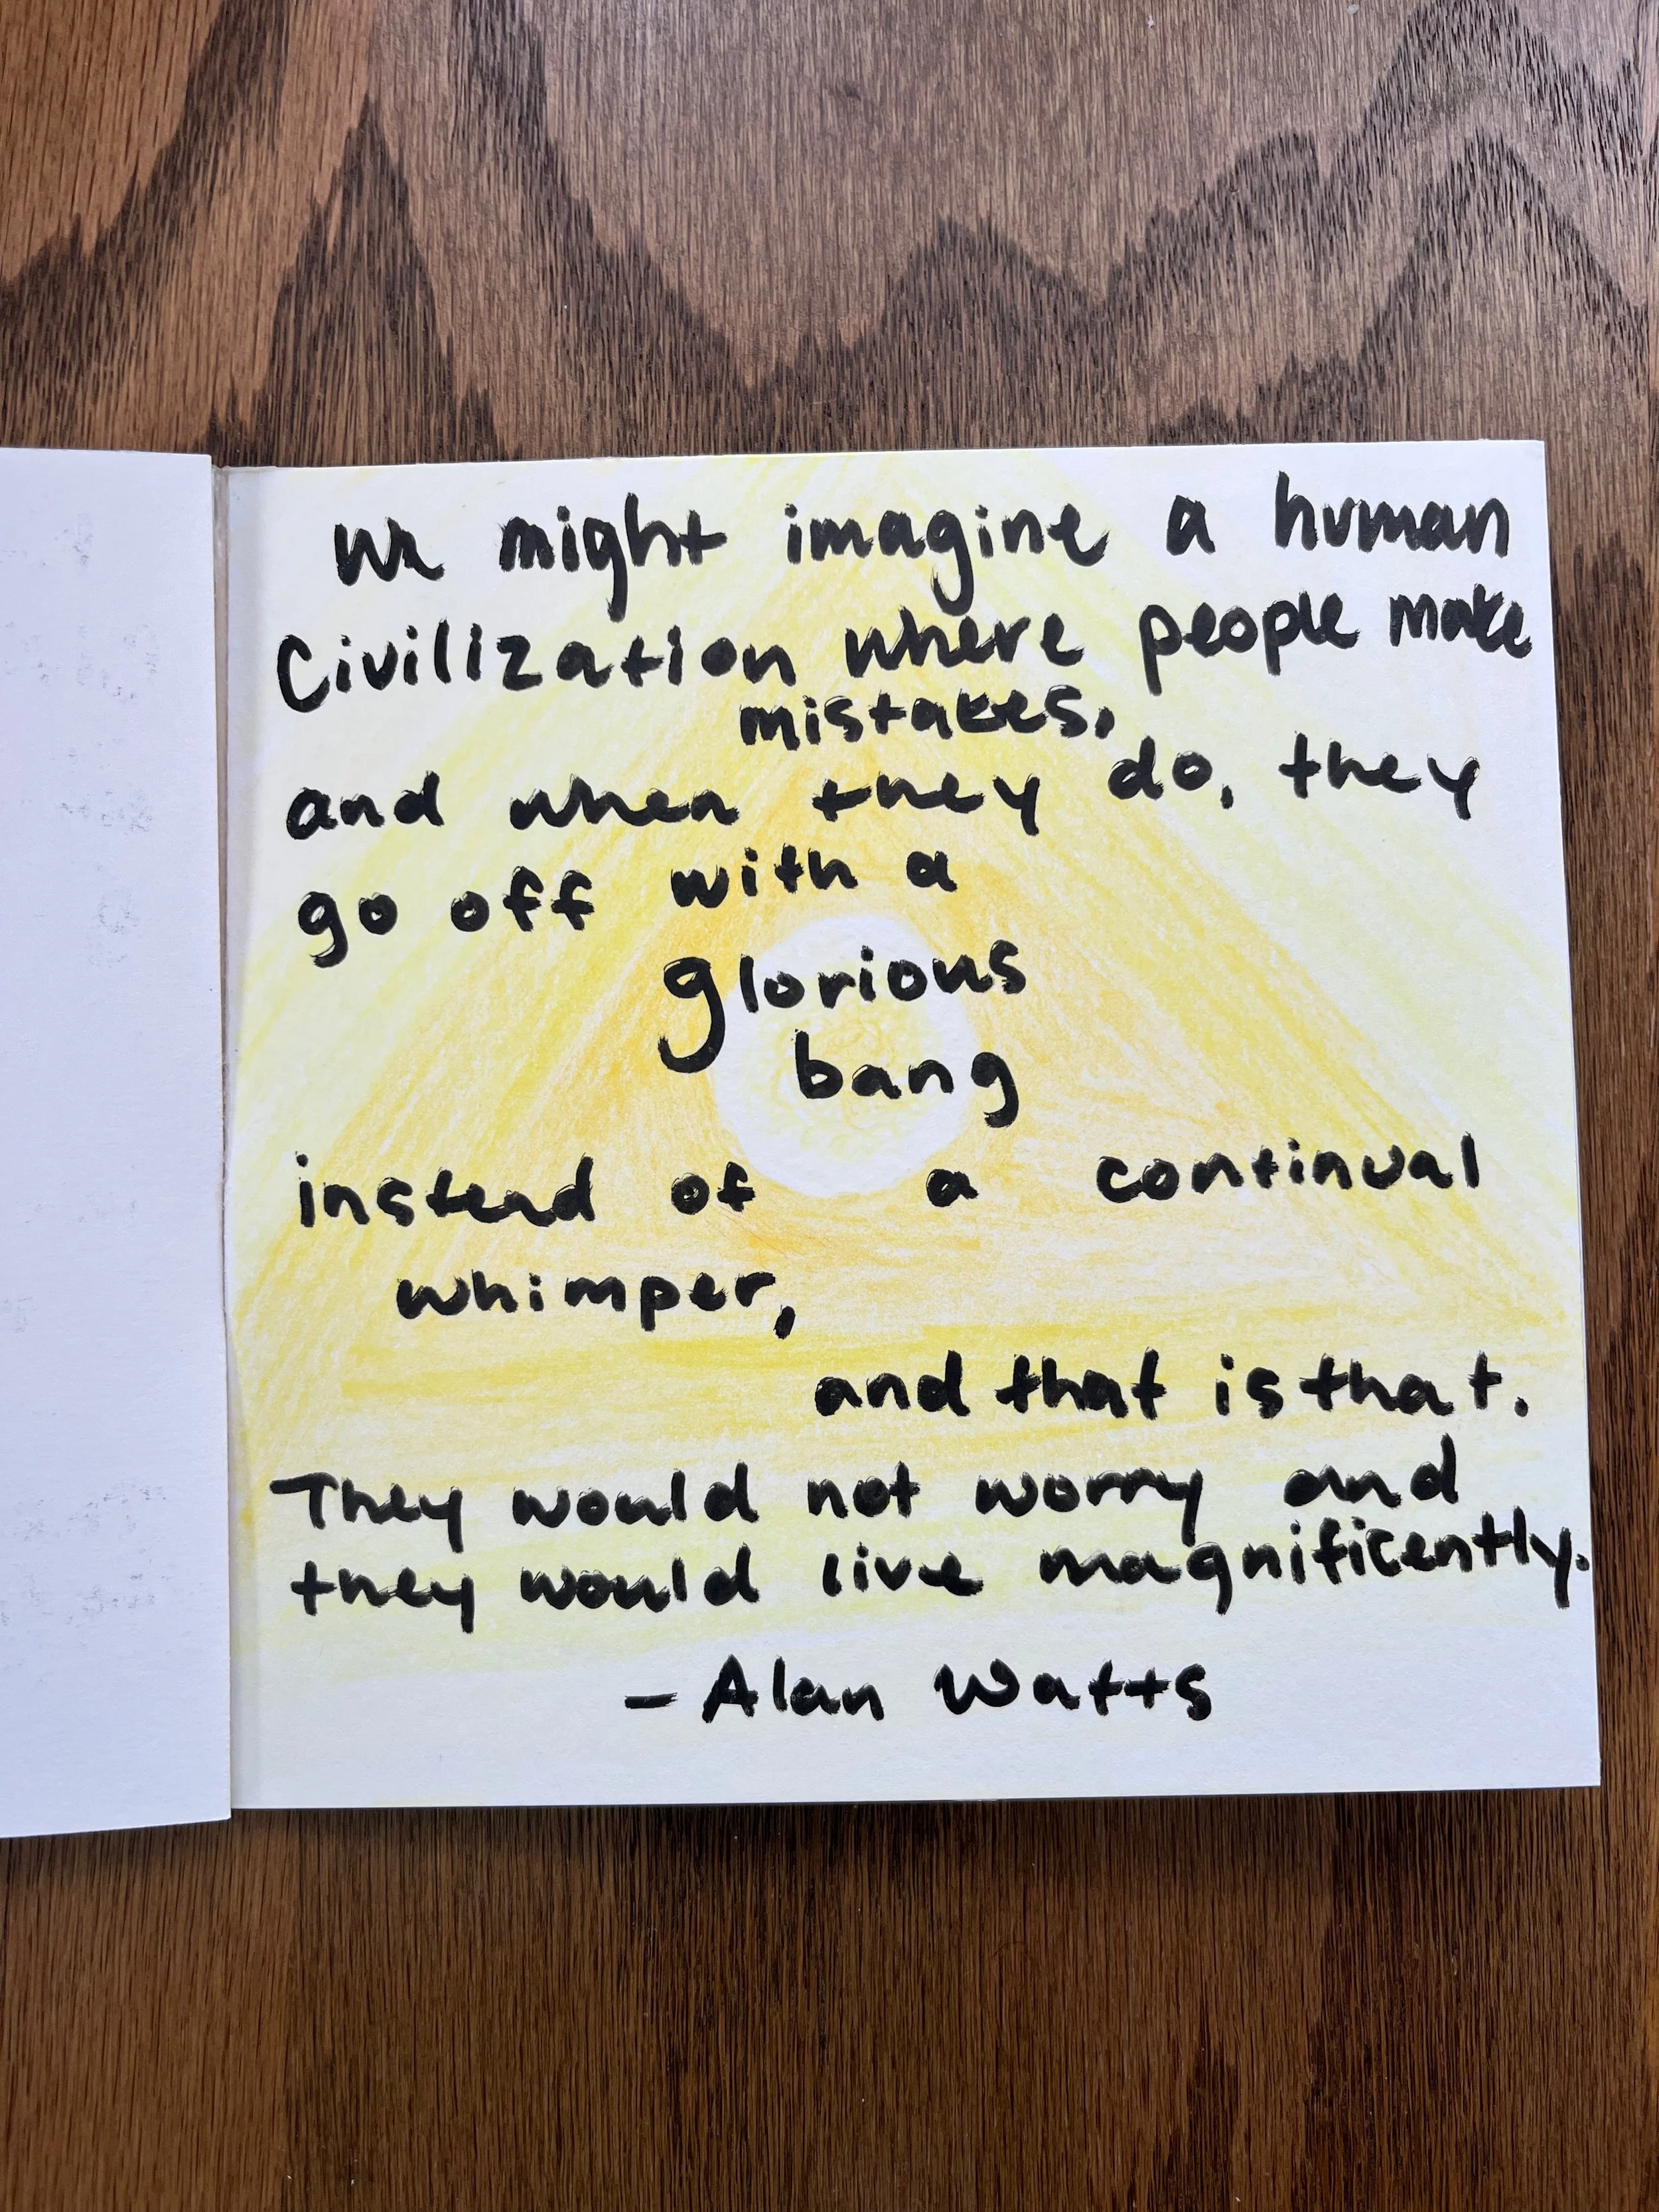 We might imagine a human
Civilization where people make
mistakes,
and when they do, they
go off with a
glorious
bang
instead of a continual
whimper,
and that is that.
They would not worry and
they would live magnificently.
- Alan Watts